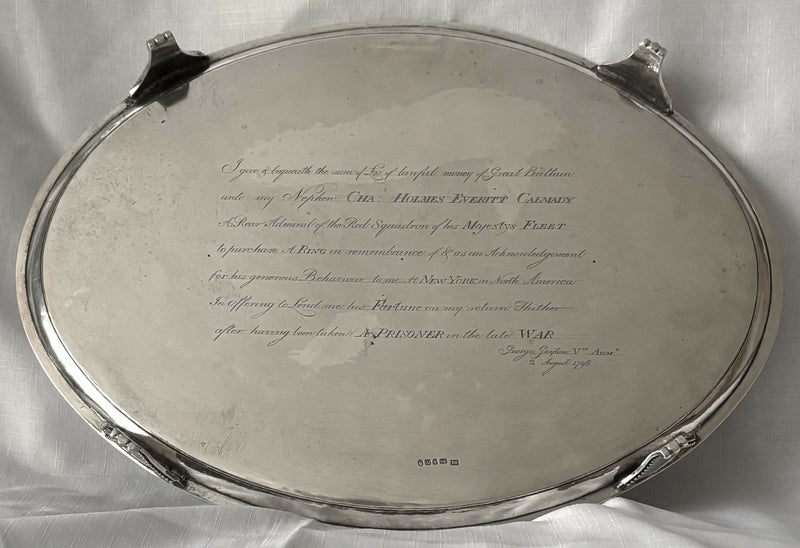 I give & bequeath the sum of of lawful money of Great Brittain
unto my Nephew CHAs HOLMES EVERITT CALMADY
A Rear Admiral of the Red Squadron of his MAJESTYS FLEET
to purchase A RING in remembrance of & as an Acknowledgement
for his generous Behaviour to me At NEW YORK in North America
In Offering to Lend me his Fortune on my return Thither
after having been taken A PRISONER in the late WAR
George Gayton Vce ADMl
2 August 1796